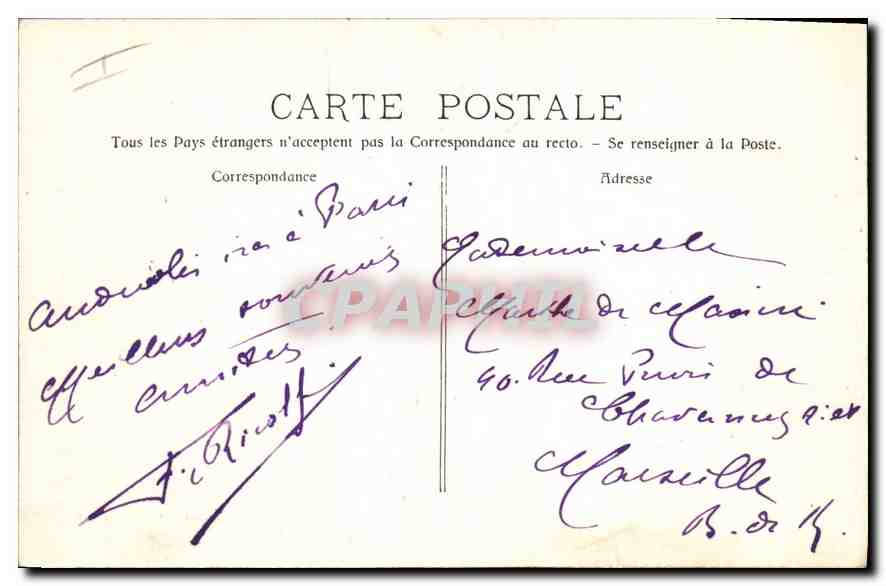 CARTE POSTALE
Tous les Pays étrangers n'acceptent pas la Correspondance au recto. - Se renseigner à la Poste.
Correspondance
Adresse
à Paris
Meilleurs souvenirs
amitiés
Mademoiselle
Marthe de
40. Rue Puvis de
Marseille
B. de R.
CPAPHIL